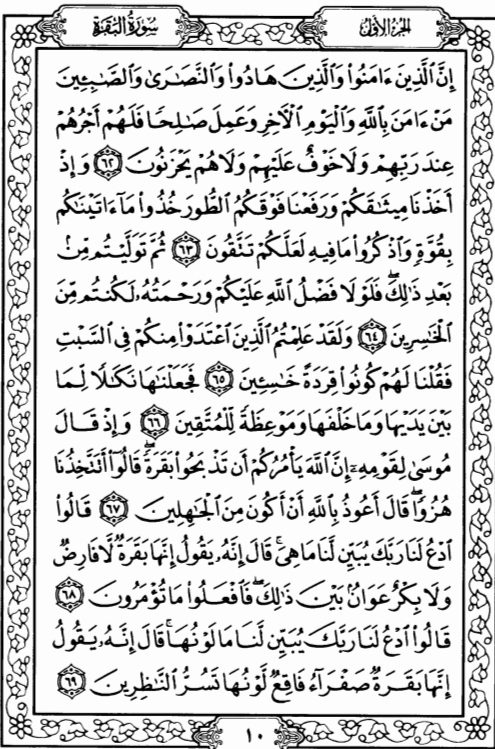 سُورَةُ البَقَرَةِ
الجُزءُ الأَوَّلُ
إِنَّ ٱلَّذِينَ ءَامَنُوا۟ وَٱلَّذِينَ هَادُوا۟ وَٱلنَّصَـٰرَىٰ وَٱلصَّـٰبِـِٔينَ
مَنْ ءَامَنَ بِٱللَّهِ وَٱلْيَوْمِ ٱلْـَٔاخِرِ وَعَمِلَ صَـٰلِحًا فَلَهُمْ أَجْرُهُمْ
عِندَ رَبِّهِمْ وَلَا خَوْفٌ عَلَيْهِمْ وَلَا هُمْ يَحْزَنُونَ ٦٢ وَإِذْ
أَخَذْنَا مِيثَـٰقَكُمْ وَرَفَعْنَا فَوْقَكُمُ ٱلطُّورَ خُذُوا۟ مَآ ءَاتَيْنَـٰكُم
بِقُوَّةٍ وَٱذْكُرُوا۟ مَا فِيهِ لَعَلَّكُمْ تَتَّقُونَ ٦٣ ثُمَّ تَوَلَّيْتُم مِّنۢ
بَعْدِ ذَٰلِكَ ۖ فَلَوْلَا فَضْلُ ٱللَّهِ عَلَيْكُمْ وَرَحْمَتُهُۥ لَكُنتُم مِّنَ
ٱلْخَـٰسِرِينَ ٦٤ وَلَقَدْ عَلِمْتُمُ ٱلَّذِينَ ٱعْتَدَوْا۟ مِنكُمْ فِى ٱلسَّبْتِ
فَقُلْنَا لَهُمْ كُونُوا۟ قِرَدَةً خَـٰسِـِٔينَ ٦٥ فَجَعَلْنَـٰهَا نَكَـٰلًا لِّمَا
بَيْنَ يَدَيْهَا وَمَا خَلْفَهَا وَمَوْعِظَةً لِّلْمُتَّقِينَ ٦٦ وَإِذْ قَالَ
مُوسَىٰ لِقَوْمِهِۦٓ إِنَّ ٱللَّهَ يَأْمُرُكُمْ أَن تَذْبَحُوا۟ بَقَرَةً ۖ قَالُوٓا۟ أَتَتَّخِذُنَا
هُزُوًا ۖ قَالَ أَعُوذُ بِٱللَّهِ أَنْ أَكُونَ مِنَ ٱلْجَـٰهِلِينَ ٦٧ قَالُوا۟
ٱدْعُ لَنَا رَبَّكَ يُبَيِّن لَّنَا مَا هِىَ ۚ قَالَ إِنَّهُۥ يَقُولُ إِنَّهَا بَقَرَةٌ لَّا فَارِضٌ
وَلَا بِكْرٌ عَوَانٌۢ بَيْنَ ذَٰلِكَ ۖ فَٱفْعَلُوا۟ مَا تُؤْمَرُونَ ٦٨
قَالُوا۟ ٱدْعُ لَنَا رَبَّكَ يُبَيِّن لَّنَا مَا لَوْنُهَا ۚ قَالَ إِنَّهُۥ يَقُولُ
إِنَّهَا بَقَرَةٌ صَفْرَآءُ فَاقِعٌ لَّوْنُهَا تَسُرُّ ٱلنَّـٰظِرِينَ ٦٩
١٠